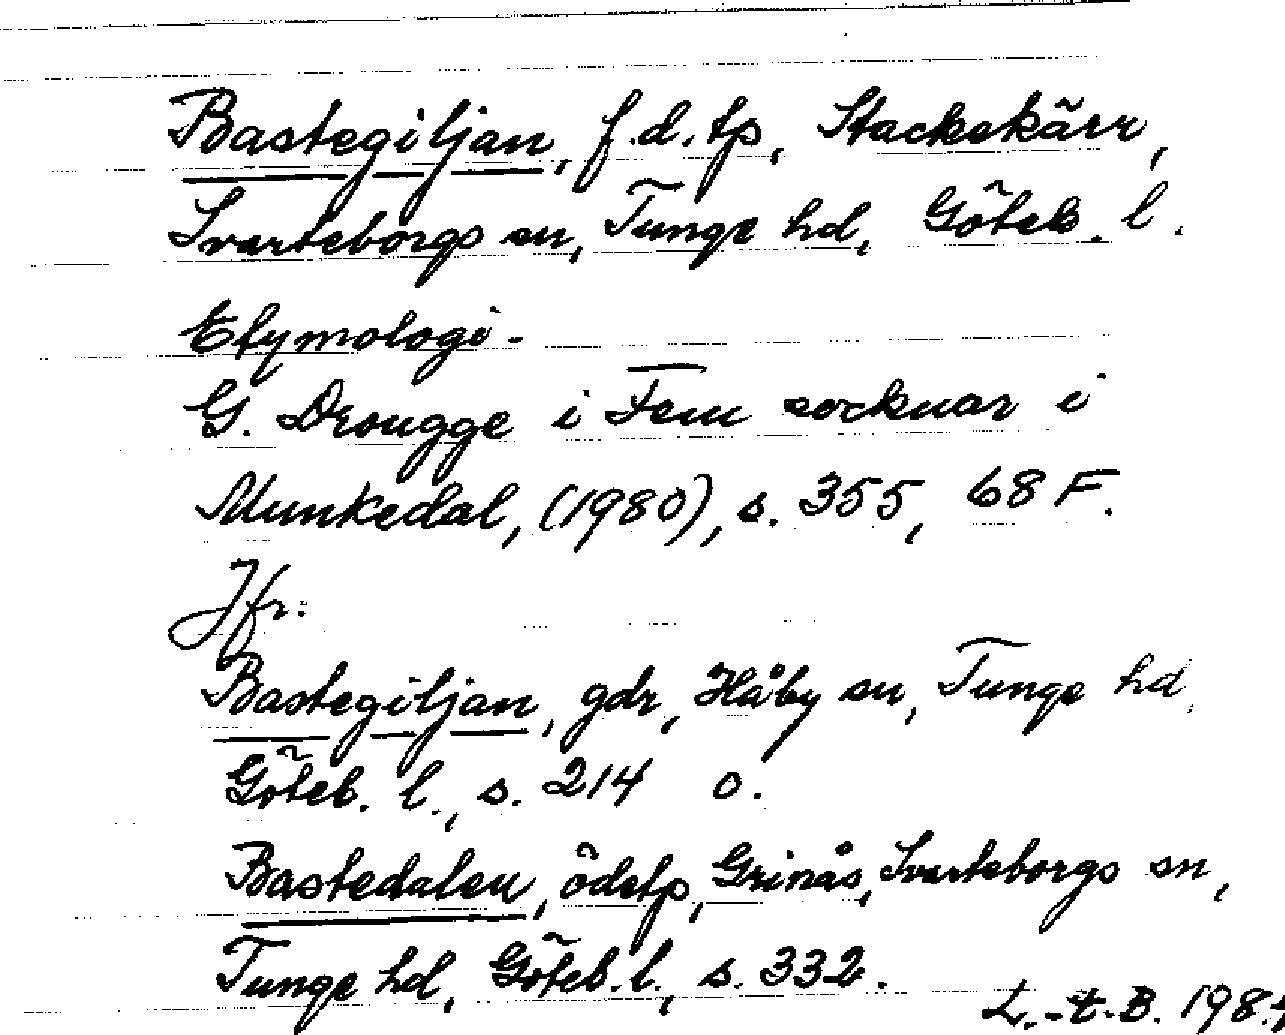 Bastegiljan, f.d. tp, Stackekärr,
Svarteborgs sn, Tunge hd, Göteb. l.
Etymologi-
G. Drougge i Fem socknar i
Munkedal, (1980), s. 355, 68 F.
Jfr:
Bastegiljan, gdr, Håby sn, Tunge hd,
Göteb. l., s. 214 o.
Bastedalen, ödetp, Grinås, Svarteborgs sn,
Tunge hd, Göteb. l., s. 332.
L.-t. B.